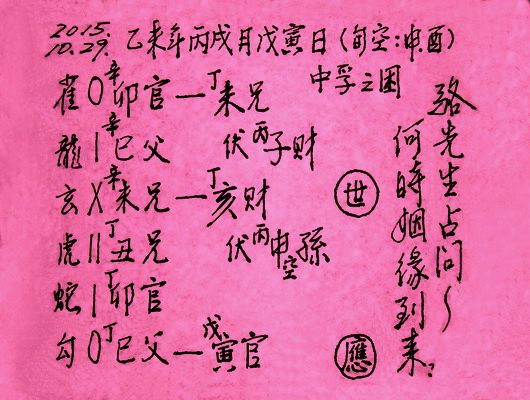 2015.
10.29. 乙未年丙戌月戊寅日(旬空:申酉)
中孚之困
雀 〇 辛卯官 — 丁未兄
龍 | 辛巳父 伏丙子財
玄 X 辛未兄 — 丁亥財 世
虎 || 丁丑兄 伏丙申空孫
蛇 | 丁卯官
勾 〇 丁巳父 — 戊寅官 應
駱先生占問~
何時姻緣到來?